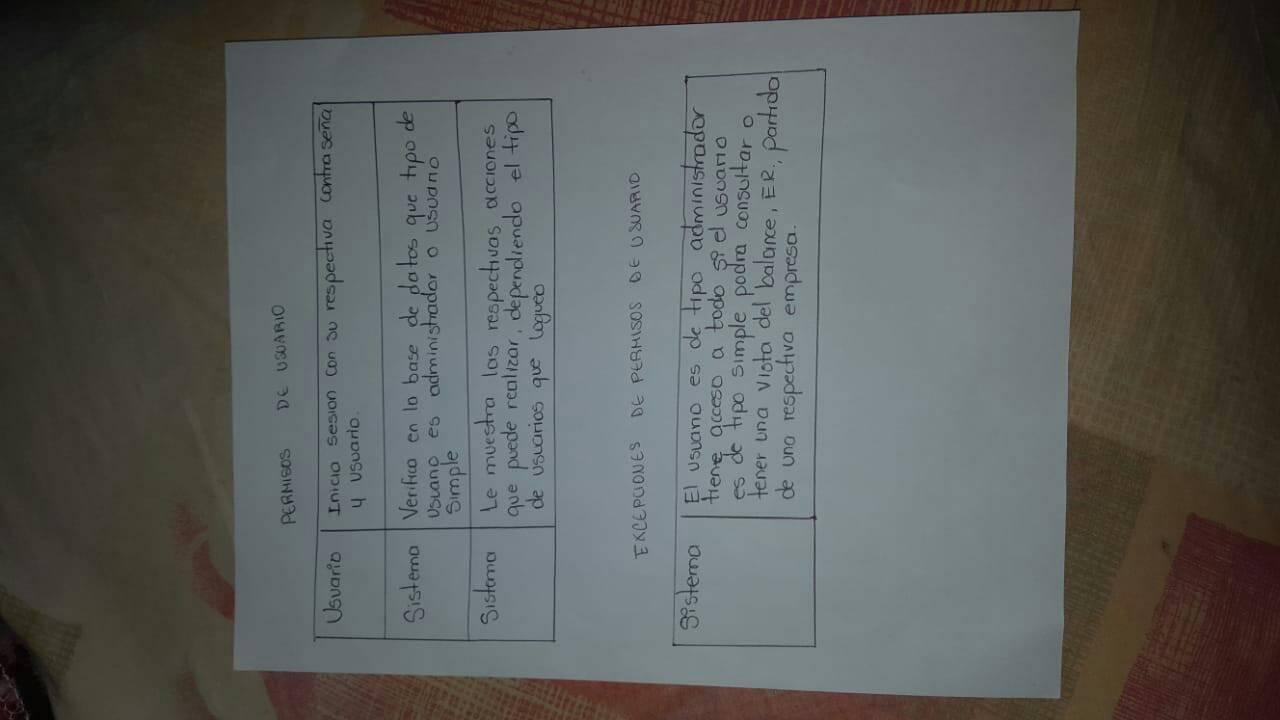 PERMISOS DE USUARIO
Usuario Inicia sesion con su respectiva contraseña
y usuario.
Sistema Verifica en la base de datos que tipo de
usuario es administrador o usuario
simple
Sistema Le muestra las respectivas acciones
que puede realizar, dependiendo el tipo
de usuarios que logueo
EXCEPCIONES DE PERMISOS DE USUARIO
Sistema El usuario es de tipo administrador
tiene acceso a todo si el usuario
es de tipo simple podra consultar o
tener una vista del balance, ER., partida
de una respectiva empresa.